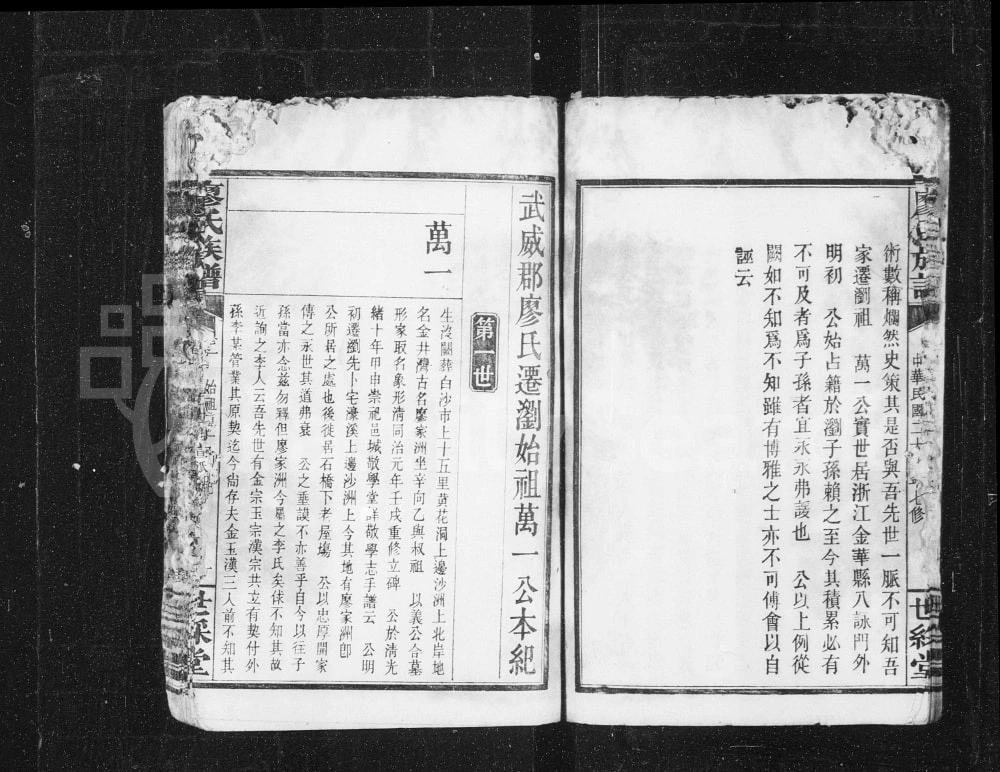 術數稱爛然史策其是否與吾先世一脈不可知吾
家遷瀏祖 萬一公實世居浙江金華縣八詠門外
明初 公始占籍於瀏子孫賴之至今其積累必有
不可及者爲子孫者宜永永弗諼也 公以上例從
闕如不知爲不知雖有博雅之士亦不可傅會以自
誣云
中華民國二十
七修
世綵堂
武威郡廖氏遷瀏始祖萬一公本紀
第一世
萬一
生歿闕葬白沙市上十五里黃花洞上邊沙洲上北岸地
名金井灣古名廖家洲坐辛向乙與叔祖 以義公合墓
形家取名象形清同治元年壬戌重修立碑 公於清光
緒十年甲申崇祀邑城敬學堂詳敬學志手譜云 公明
初遷瀏先卜宅濠溪上邊沙洲上今其地有廖家洲卽
公所居之處也後徙居石橋下老屋塲 公以忠厚開家
傳之永世其道弗衰 公之垂謨不亦善乎自今以往子
孫當亦念茲勿釋但廖家洲今屬之李氏矣俅不知其故
近詢之李人云吾先世有金宗玉宗漢宗共立有契付外
孫李某管業其原契迄今尙存夫金玉漢三人前不知其
廖氏族譜
世綵堂